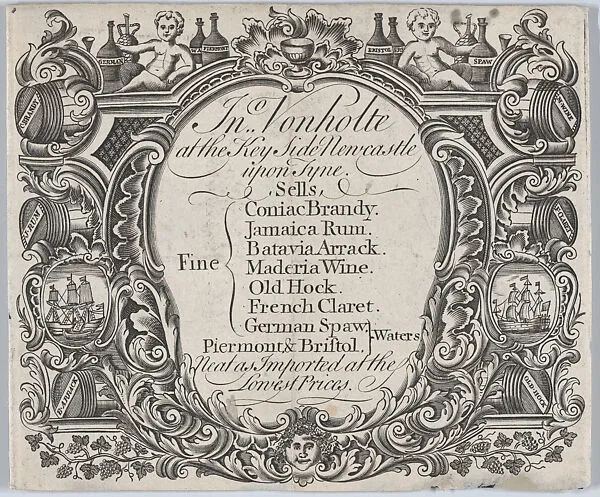 GERMAN
PIERMONT
BRISTOL
SPAW
BRANDY
Jn.º Vonholte
at the Key Side Newcastle
upon Tyne.
Sells
Coniac Brandy.
Jamaica Rum.
Batavia Arrack.
Fine
Maderia Wine.
Old Hock.
French Claret.
German Spaw,
Waters
Piermont & Briſtol,
Neat as Imported at the
Lowest Prices.
RUM
CLARET
OLD HOCK